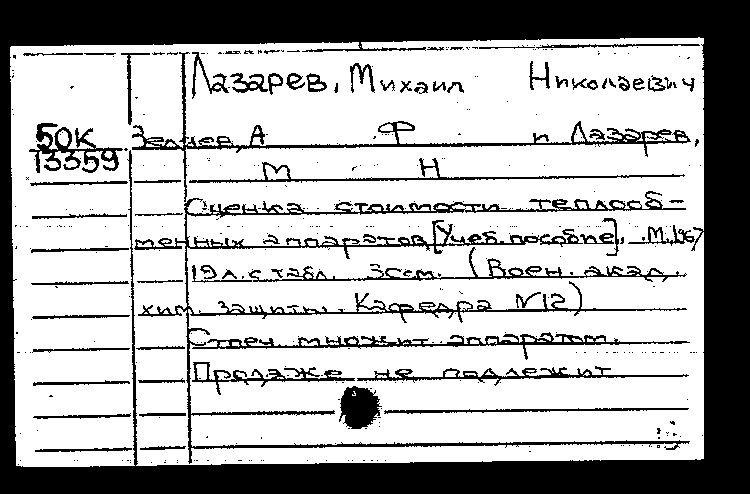 Лазарев, Михаил Николаевич
50К А Ф и Лазарев,
13359 М Н
Оценка стоимости теплооб-
менных аппаратов [Учеб. пособие]. М., 1967
19 л. с табл. 35см. (Воен. акад.
хим. защиты. Кафедра №12)
Стеч. множит. аппаратом.
Продаже не подлежит